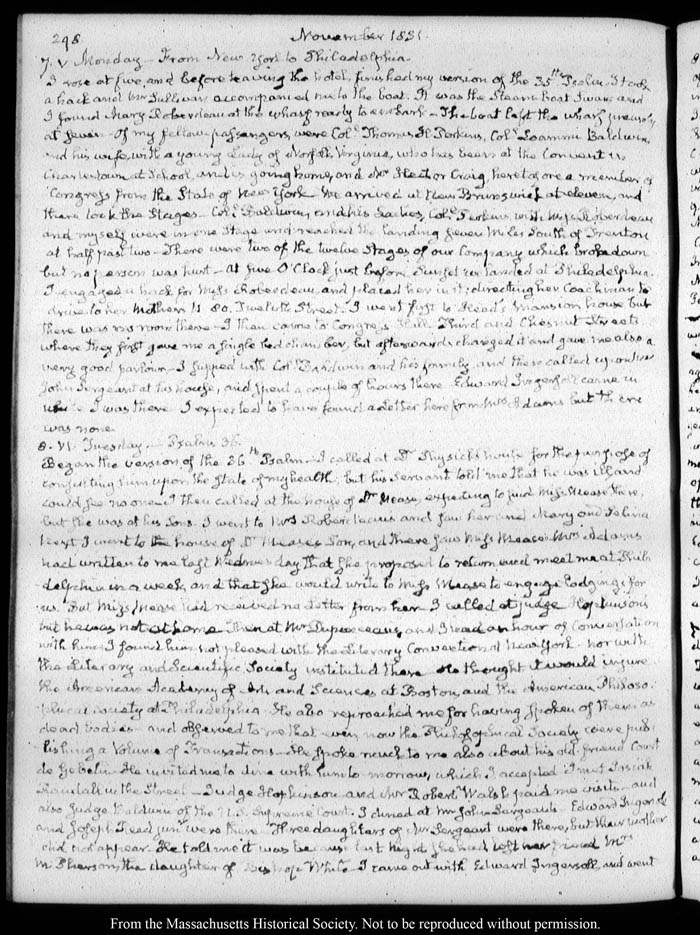 298 November 1831.
7. V Monday – From New York to Philadelphia.
I rose at five, and before leaving the hotel, finished my version of the 35th Psalm. I took
a hack and Mr Sullivan accompanied me to the boat. It was the Steam Boat Swan and
I found Mary Roberdeau at the wharf ready to embark – The boat left the wharf precisely
at seven – Of my fellow-passengers, were Col. Thomas H Perkins, Col. Loammi Baldwin,
and his wife, with a young Lady of Norfolk Virginia, who has been at the Convent in
Charlestown at School, and is going home, and Mr Hector Craig, heretofore a member of
Congress from the State of New York. We arrived at New Brunswick at eleven, and
there took the Stages – Col. Baldwin, and his Ladies, Col. Perkins, with Miss Roberdeau
and myself were in one Stage and reached the landing seven Miles South of Trenton
at half past two – There were two of the twelve Stages of our Company which broke down
but no person was hurt – At five O'Clock just before Sunset we landed at Philadelphia.
I engaged a hack for Miss Roberdeau, and placed her in it; directing her Coachman to
drive to her Mothers N. 80. Twelfth Street. I went first to Head's Mansion house but
there was no room there – I then came to Congress Hall. Third and Chesnut Streets.
where they first gave me a single bed chamber, but afterwards changed it and gave me also a
very good parlour – I supped with Col. Baldwin and his family, and then called upon Mr
John Sergeant at his house, and spent a couple of hours there. Edward Ingersoll came in
while I was there. I expected to have found a Letter here from Mrs Adams but there
was none.
8. VI. Tuesday – Psalm 36.
Began the version of the 36th Psalm – I called at Dr Physick's house for the purpose of
consulting him upon the state of my health; but his servant told me that he was ill and
could see no one. I then called at the house of Dr Mease, expecting to find Miss Mease there,
but she was at his Sons. I went to Mrs Roberdeaus and saw her and Mary and Selina
Next I went to the house of Dr Mease's Son, and there saw Miss Mease. Mrs Adams
had written to me last Wednesday that she proposed to return and meet me at Phila-
delphia in a week, and that she would write to Miss Mease to engage lodgings for
us. But Miss Mease had received no Letter from her. I called at Judge Hopkinson's
but he was not at home. Then at Mr Duponceau's, and I had an hour of Conversation
with him. I found him not pleased with the Literary Convention at New York. nor with
the Literary and Scientific Society instituted there. He thought it would injure
the American Academy of Arts and Sciences at Boston, and the American Philoso-
phical Society at Philadelphia. He also reproached me for having spoken of them as
dead bodies – and observed to me that even now the Philosophical Society were pub-
lishing a Volume of Transactions – He spoke much to me also about his old friend Court
de Gebelin. He invited me to dine with him to-morrow, which I accepted. I met Josiah
Randall in the Street – Judge Hopkinson and Mr Robert Walsh paid me visits – and
also Judge Baldwin of the U.S. Supreme Court. I dined at Mr John Sergeants. Edward Ingersoll
and Joseph Reed junr were there. Three daughters of Mr Sergeant were there, but their mother
did not appear. He told me it was because last night she had lost her friend Mrs
McPherson, the daughter of Bishop White – I came out with Edward Ingersoll and went
From the Massachusetts Historical Society. Not to be reproduced without permission.